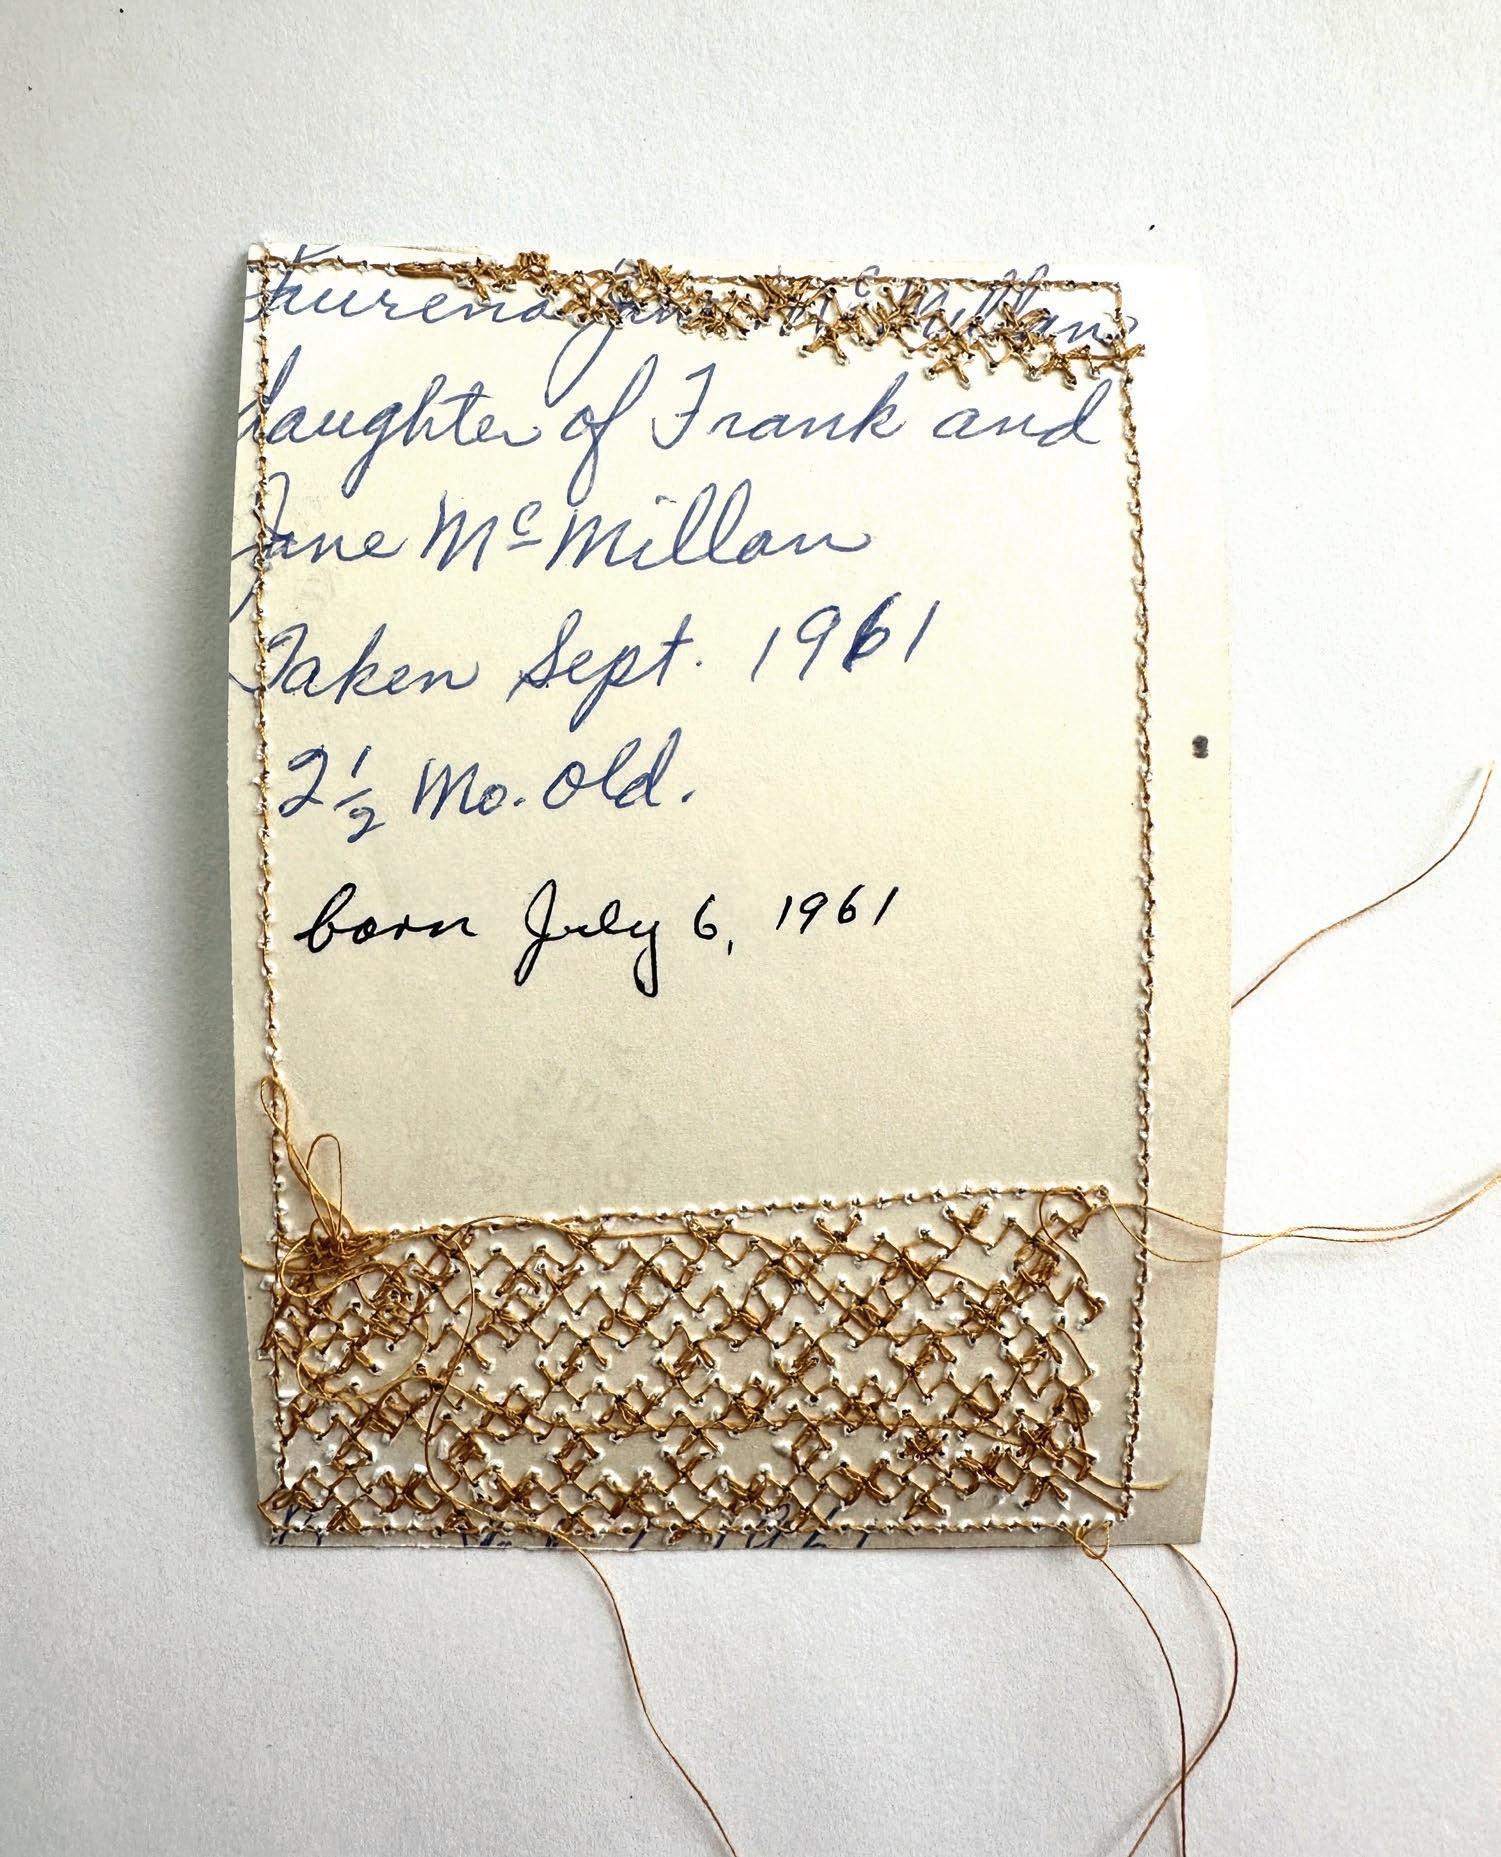 McMillan
daughter of Frank and
Jane Mc Millan
Taken Sept. 1961
2 1/2 Mo. Old.
born July 6, 1961